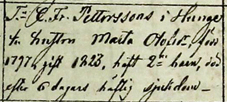 T. C. Fr. Petterssons i Hunge
hustru Maria Olofsd. född
1797, gift 1823, haft 2ne barn, död
efter 6 dagars häftig sjukdom.